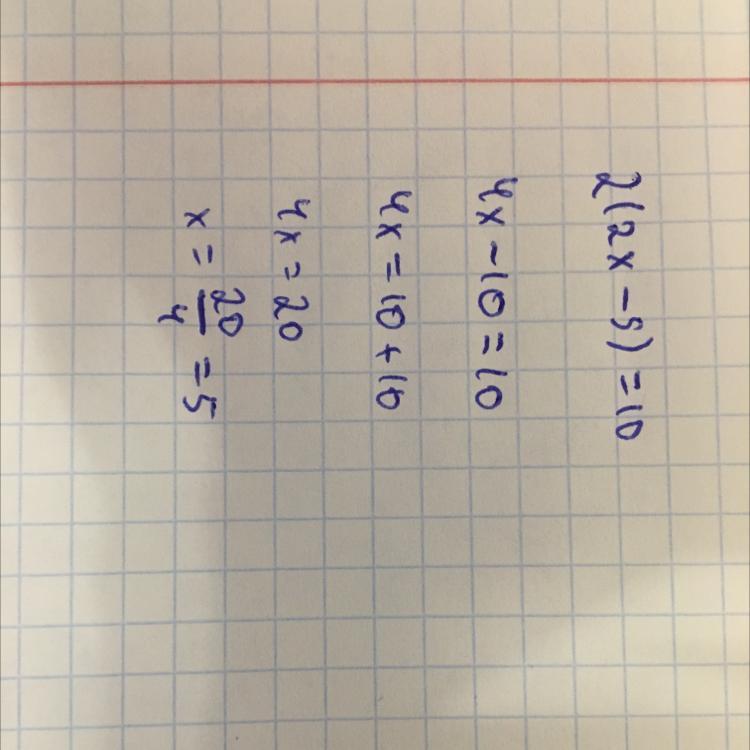 2(2x - 5) = 10
4x - 10 = 10
4x = 10 + 10
4x = 20
x = 20/4 = 5